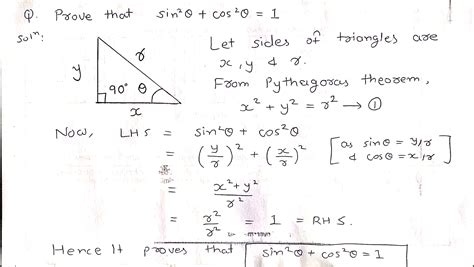 Q. Prove that sin²θ + cos²θ = 1
Solⁿ:
y
r
90° θ
x
Let sides of triangles are
x, y & r.
From Pythagoras theorem,
x² + y² = r² → ①
Now, LHS = sin²θ + cos²θ
= (y/r)² + (x/r)² [as sinθ = y/r
& cosθ = x/r]
= x²+y²/r²
= r²/r² = 1 = RHS.
Hence It proves that sin²θ + cos²θ = 1